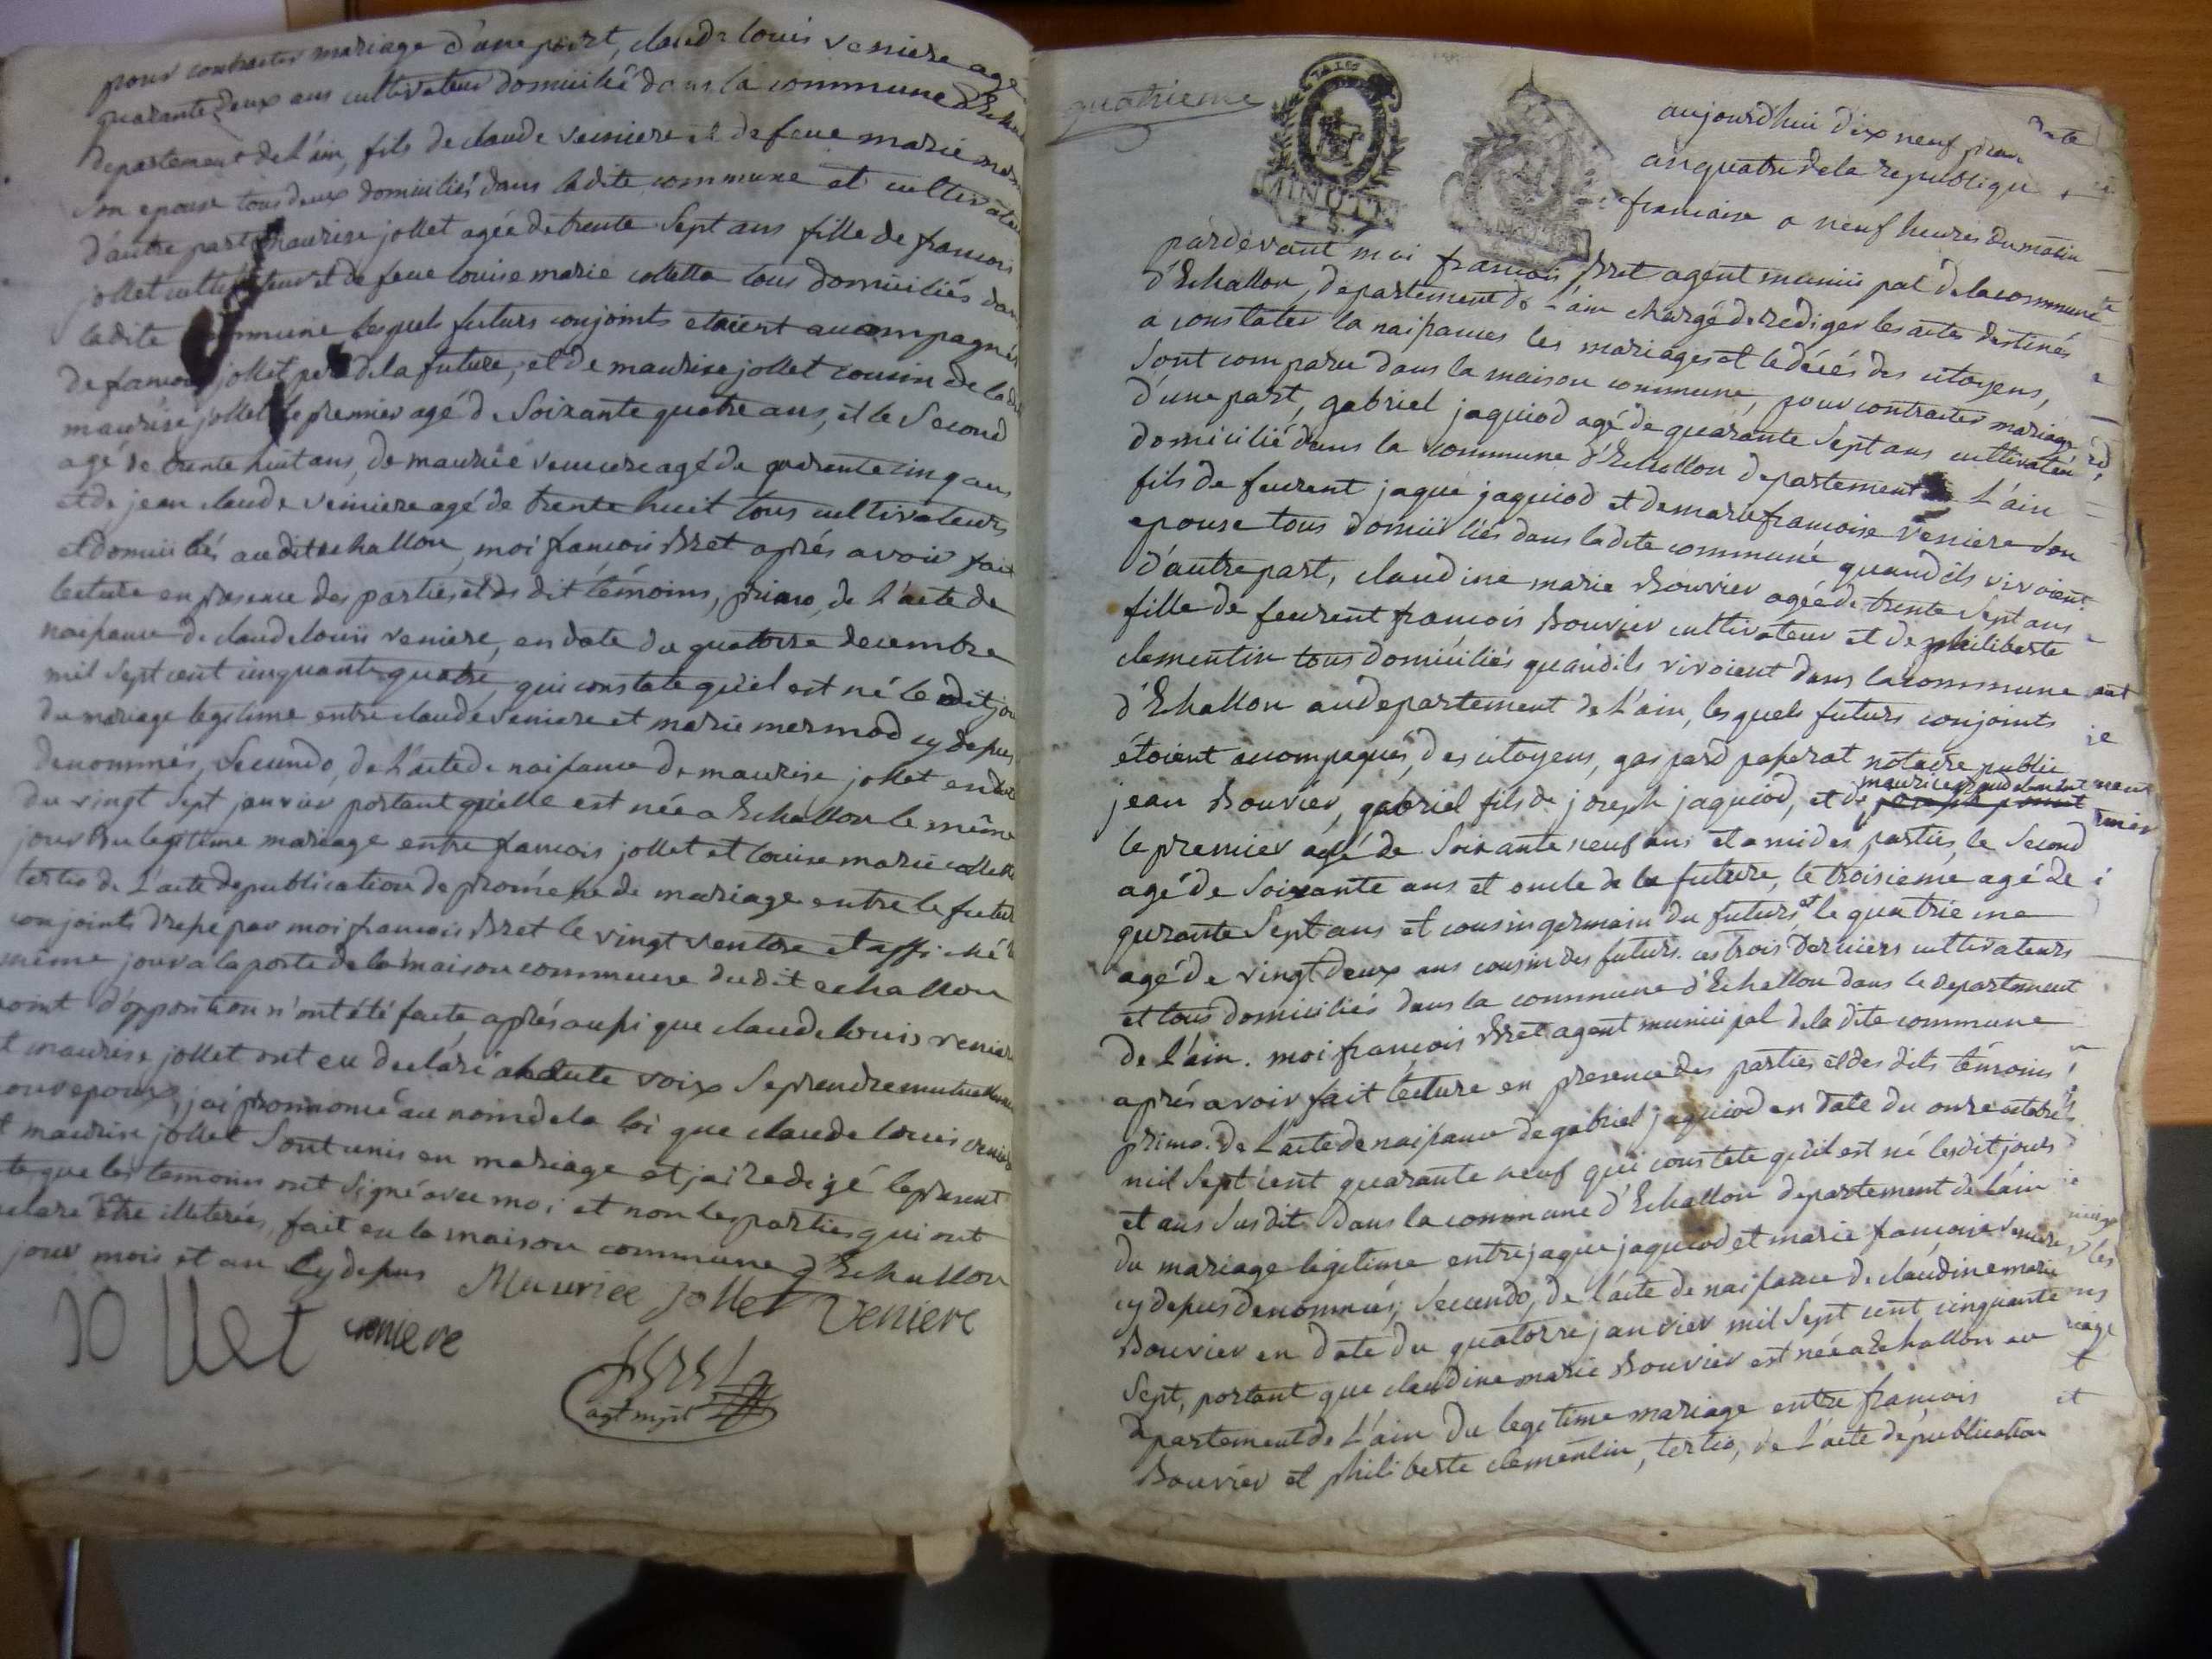 pour contracter mariage d'une part, claude louis veniere agé
quarante deux ans cultivateur domicilié dans la commune d'Echal
departement de L'ain, fils de claude veniere et de feue marie mer
son epouse tous deux domiciliés dans ladite commune et cultivate
d'autre part maurise jollet agée de trente Sept ans fille de francois
jollet cultivateur et de feue louise marie colletta tous domiciliés dan
ladite commune lesquels futurs conjoints etoient accompagnés
de francois jollet pere de la future, et de maurise jollet cousin de ladit
maurise jollet le premier agé de Soixante quatre ans, et le Second
agé de trente huit ans, de maurice veniere agé de quarante cinq ans
et de jean claude veniere agé de trente huit tous cultivateurs
et domiciliés audit echallon, moi francois Bret aprés avoir fait
lecture en presence des parties et de dit témoins, primo, de L'acte de
naissance de claude louis veniere, en date du quatorse decembre
mil Sept cent cinquante quatre, qui constate quil est né le dit jou
du mariage legitime entre claude veniere et marie mermod cy dessus
denommés, Secundo, de L'acte de naissance de maurise jollet en date
du vingt Sept janvier portant qu'elle est née a Echallon le même
jour du legitime mariage entre francois jollet et louise marie collett
tertio de L'acte de publication de promesse de mariage entre le futur
conjoints dressé par moi francois Bret le vingt ventose et affiché l
même jour a la porte de la maison commune dudit echallon
point d'opposition n'ont été faite, aprés aussi que claude louis venier
t maurise jollet ont eu declaré a haute voix Se prendre mutuellem
our epoux, j'ai prononcé au nom de la loi que claude louis venier
t maurise jollet Sont unis en mariage et j'ai redigé le present
te que les temoins ont Signé avec moi et non les parties qui ont
clare être illiterés, fait en la maison commune d'Echallon
jour mois et an cy dessus
Maurice jollet Veniere
jollet veniere
Bret
agt mpl
quatrieme
MINUTE
aujourd'hui dix neuf
an quatre de la republique
francaise a neuf heures du matin
pardevant moi francois Bret agent municipal de la commune
d'Echallon, departement de L'ain chargé de rediger les actes destinés
a constater la naissances les mariages et le décés des citoyens,
Sont comparu dans la maison commune, pour contracter mariage
d'une part, gabriel jaquiod agé de quarante Sept ans cultivateu
domicilié dans la commune d'Echallon departement de L'ain
fils de feurent jaque jaquiod et de marie francoise Veniere Son
epouse tous domiciliés dans ladite commune quand ils vivoient
d'autre part, claudine marie Bouvier agée de trente Sept ans
fille de feurent francois Bouvier cultivateur et de philiberte
clementin tous domiciliés quand ils vivoient dans la commune
d'Echallon au departement de L'ain, lesquels futurs conjoints
étoient accompagnés, des citoyens, gaspard passerat notaire public
jean Bouvier, gabriel fils de joseph jaquiod, et de maurice grandclement
le premier agé de Soixante neuf ans et ami des parties, le Second
agé de Soixante ans et oncle de la future, le troisieme agé de
qurante Sept ans et cousin germain du futurs, et le quatrieme
agé de vingt deux ans cousin des futurs. ces trois derniers cultivateurs
et tous domiciliés dans la commune d'Echallon dans le departement
de L'ain. moi françois Bret agent municipal de la dite commune
aprés avoir fait lecture en presence des parties et des dits témoins
primo. de L'acte de naissance de gabriel jaquiod en date du onze octobre
mil Sept cent quarante neuf qui constate qu'il est né lesdit jours
et ans Susdit dans la commune d'Echallon departement de L'ain
du mariage legitime entre jaque jaquiod et marie francoise Veniere
cy dessus denommés; Secundo, de L'acte de naissance de claudine marie
Bouvier en date du quatorze janvier mil Sept cent cinquante
Sept, portant que claudine marie Bouvier est née a Echallon au
departement de L'ain du legitime mariage entre françois
Bouvier et philiberte clementin, tertio, de L'acte de publication